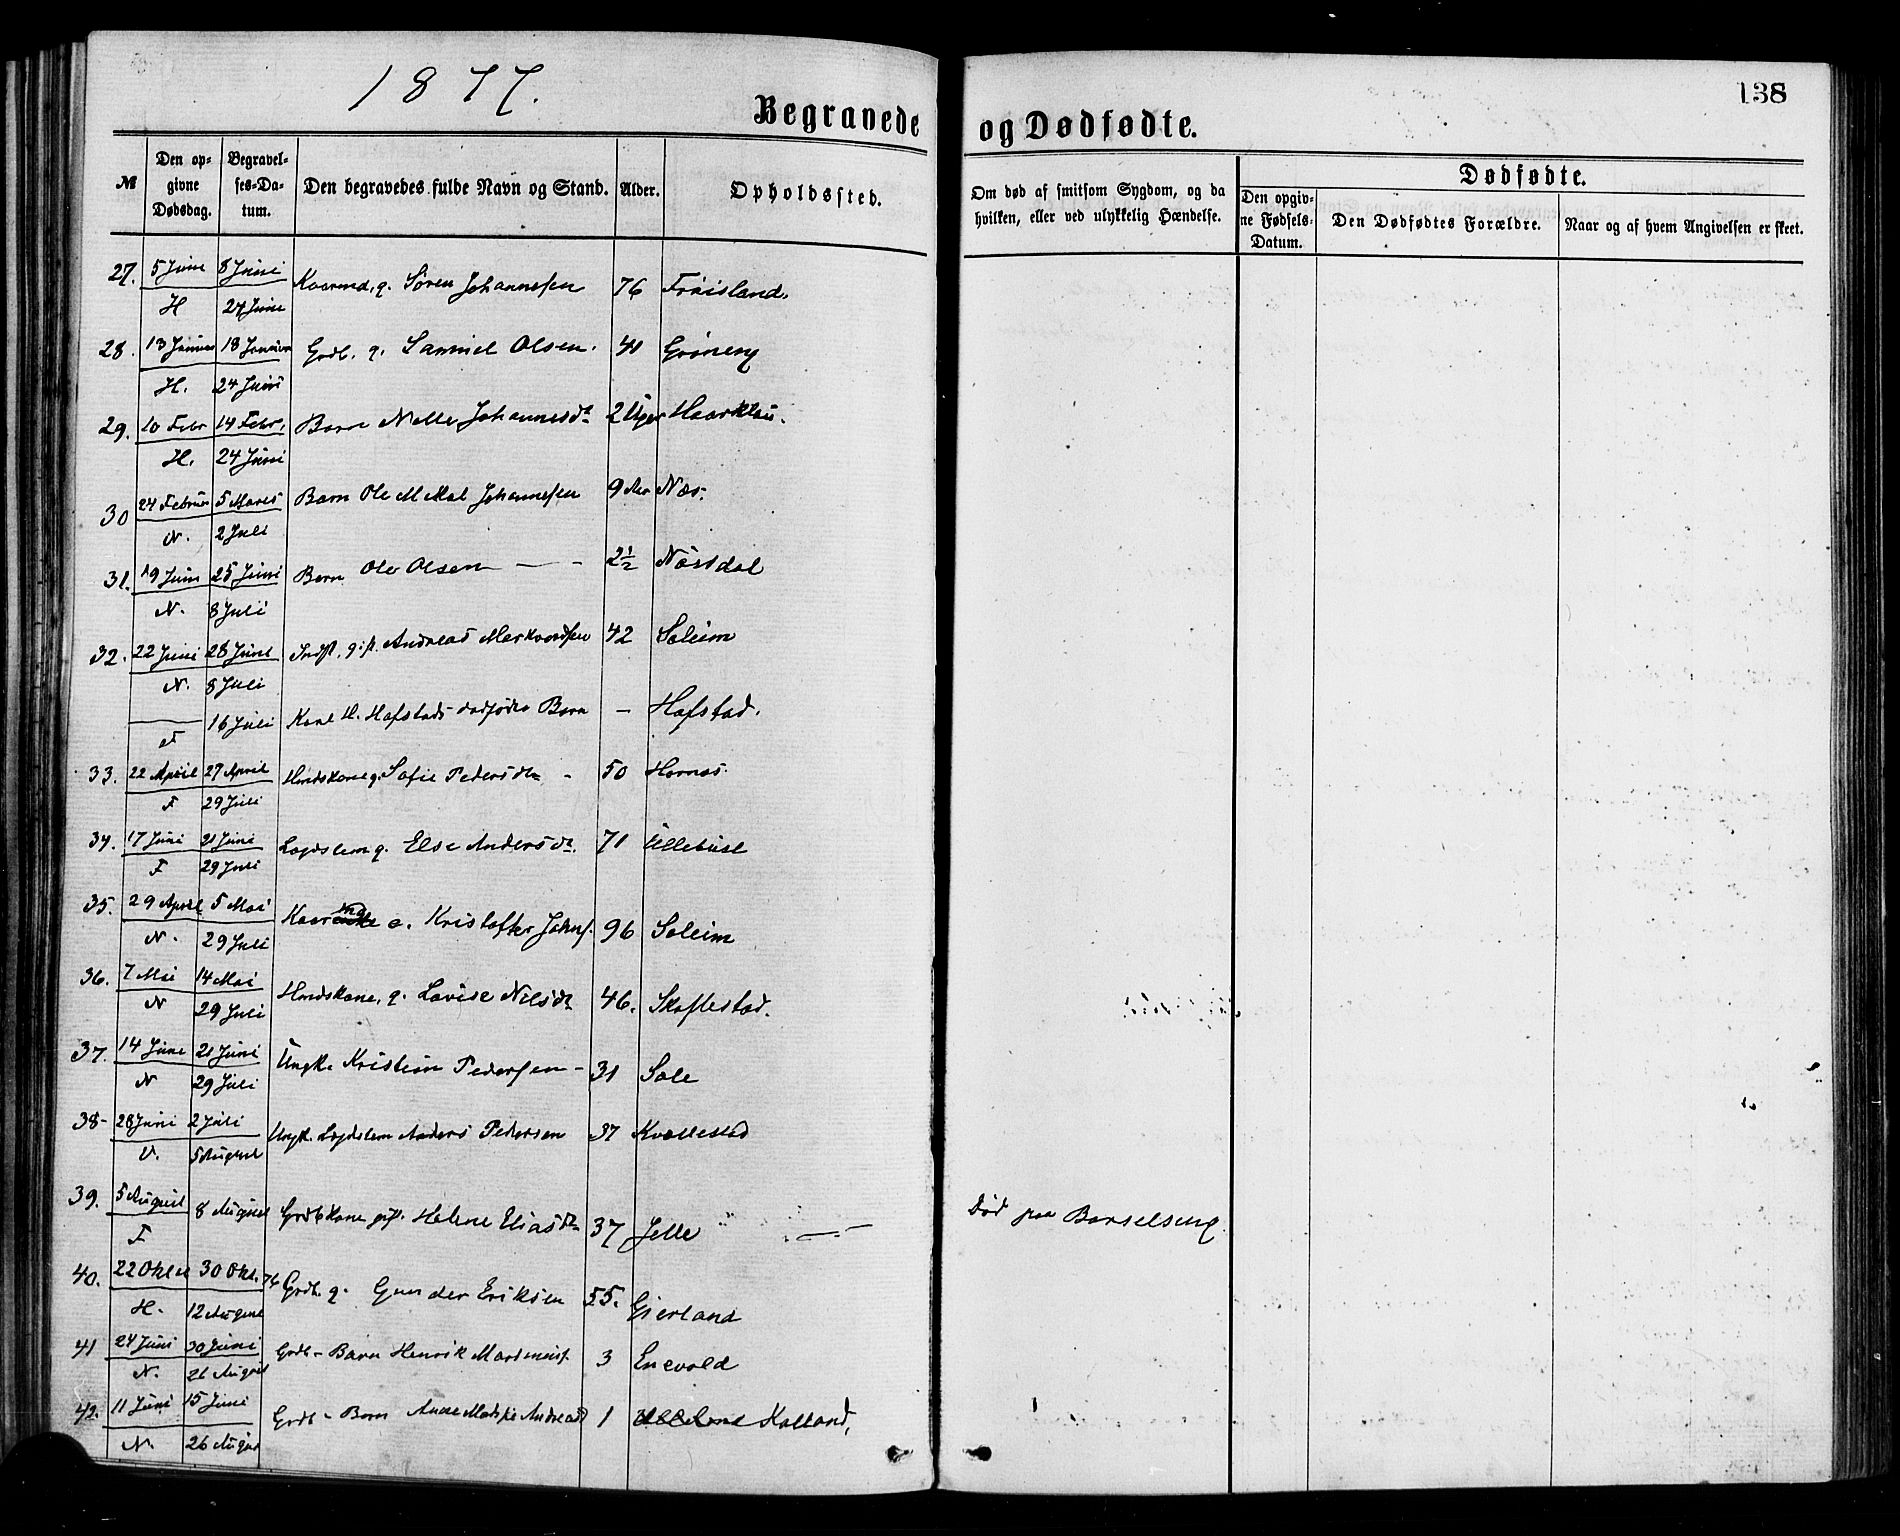 1877.
138
Begravede og Dødfødte.
№ Den opgivne Dødsdag. Begravelses-Datum. Den begravedes fulde Navn og Stand. Alder. Opholdssted. Om død af smitsom Sygdom, og da hvilken, eller ved ulykkelig Hændelse. Dødfødte. Den opgivne Fødsels-Datum. Den Dødfødtes Forældre. Naar og af hvem Angivelsen er skeet.
27. 5 Juni 8 Juni Kaarmd. g. Sören Johannesen 76 Fröisland.
H 24 Juni
28. 13 Januar 18 Januar Grdb. g. Samuel Olsen. 41 Gröneng
H. 24 Juni
29. 10 Febr 14 Febr. Barn Nelle Johannesdr 2 Uger Haarklau.
H. 24 Juni
30 24 Februar 5 Marts Barn Ole Mikal Johannesen 9 Aar Næs.
N. 2 Juli
31. 19 Juni 25 Juni Barn Ole Olsen — - 2½ Nösdal
N. 8 Juli
32. 22 Juni 28 Juni Indst. gift. Andreas Markvardsen 42 Soleim
N. 8 Juli
— 16 Juli Karl H. Hafstads dødfødte Barn - Hafstad.
F
33. 22 April 27 April Huuskone g. Sofie Pedersdtr - 50 Hornæs.
F 29 Juli
34. 17 Juni 21 Juni Lægdslem g. Else Andersdr. 71 Ullebust
F 29 Juli
35. 29 April 5 Mai Kaarmd e. Kristoffer Johns. 96 Soleim
N. 29 Juli
36. 7 Mai 14 Mai Huuskone, g. Lovise Nilsdr 46. Skaflestad.
N 29 Juli
37. 14 Juni 21 Juni Ungk. Kristian Pedersen - 31 Sole
N 29 Juli
38- 28 Juni 2 Juli Ungk. Lægdslem Anders Pedersen 37 Kvællestad
V. 5 August
39. 5 August 8 August Grdbkone gift. Helene Eliasdr 37 Jelle Död paa Barselseng.
F
40. 22 Oktbr 30 Okt. 76 Grdb. g. Gunder Eriksen 55. Gierland
H. 12 August
41 24 Juni 30 Juni Grdb - Barn Henrik Martineus. 3 Enevold
N. 26 August
42. 11 Juni 15 Juni Grdb - Barn Anne Andreasd 1 Kalland,
N. 26 August